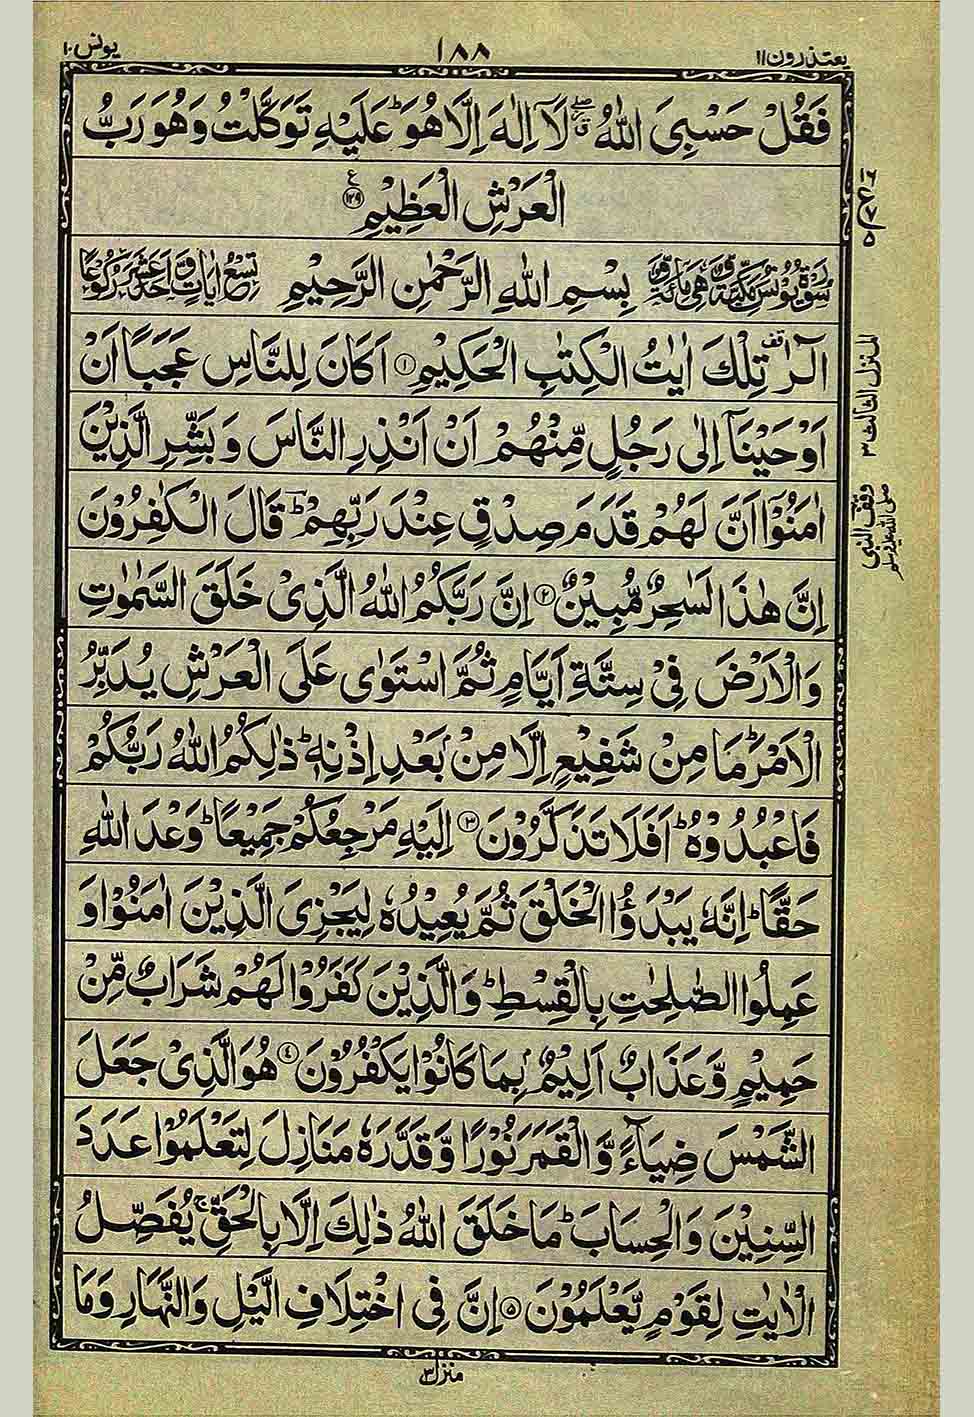 یعتذرون ۱۱
۱۸۸
یونس ۱۰
فَقُلْ حَسْبِیَ اللّٰهُ ۖ لَاۤ اِلٰهَ اِلَّا هُوَ ؕ عَلَیْهِ تَوَكَّلْتُ وَ هُوَ رَبُّ
الْعَرْشِ الْعَظِیْمِ ۱۲۹ ع
سُوْرَةُ یُوْنُسَ مَكِّیَّةٌ وَّ هِیَ مِائَةٌ وَّ بِسْمِ اللّٰهِ الرَّحْمٰنِ الرَّحِیْمِ تِسْعُ اٰیَاتٍ وَّ اَحَدَ عَشَرَ رُكُوْعًا
الٓرٰ قف تِلْكَ اٰیٰتُ الْكِتٰبِ الْحَكِیْمِ ۱ اَكَانَ لِلنَّاسِ عَجَبًا اَنْ
اَوْحَیْنَاۤ اِلٰی رَجُلٍ مِّنْهُمْ اَنْ اَنْذِرِ النَّاسَ وَ بَشِّرِ الَّذِیْنَ
اٰمَنُوْۤا اَنَّ لَهُمْ قَدَمَ صِدْقٍ عِنْدَ رَبِّهِمْ ؕ قَالَ الْكٰفِرُوْنَ
اِنَّ هٰذَا لَسٰحِرٌ مُّبِیْنٌ ۲ اِنَّ رَبَّكُمُ اللّٰهُ الَّذِیْ خَلَقَ السَّمٰوٰتِ
وَ الْاَرْضَ فِیْ سِتَّةِ اَیَّامٍ ثُمَّ اسْتَوٰی عَلَی الْعَرْشِ یُدَبِّرُ
الْاَمْرَ ؕ مَا مِنْ شَفِیْعٍ اِلَّا مِنْۢ بَعْدِ اِذْنِهٖ ؕ ذٰلِكُمُ اللّٰهُ رَبُّكُمْ
فَاعْبُدُوْهُ ؕ اَفَلَا تَذَكَّرُوْنَ ۳ اِلَیْهِ مَرْجِعُكُمْ جَمِیْعًا ؕ وَعْدَ اللّٰهِ
حَقًّا ؕ اِنَّهٗ یَبْدَؤُا الْخَلْقَ ثُمَّ یُعِیْدُهٗ لِیَجْزِیَ الَّذِیْنَ اٰمَنُوْا وَ
عَمِلُوا الصّٰلِحٰتِ بِالْقِسْطِ ؕ وَ الَّذِیْنَ كَفَرُوْا لَهُمْ شَرَابٌ مِّنْ
حَمِیْمٍ وَّ عَذَابٌ اَلِیْمٌۢ بِمَا كَانُوْا یَكْفُرُوْنَ ۴ هُوَ الَّذِیْ جَعَلَ
الشَّمْسَ ضِیَآءً وَّ الْقَمَرَ نُوْرًا وَّ قَدَّرَهٗ مَنَازِلَ لِتَعْلَمُوْا عَدَدَ
السِّنِیْنَ وَ الْحِسَابَ ؕ مَا خَلَقَ اللّٰهُ ذٰلِكَ اِلَّا بِالْحَقِّ ۚ یُفَصِّلُ
الْاٰیٰتِ لِقَوْمٍ یَّعْلَمُوْنَ ۵ اِنَّ فِی اخْتِلَافِ الَّیْلِ وَ النَّهَارِ وَ مَا
المنزل الثالث ۳
وقف النبی
صلی الله علیه وسلم
منزل ۳